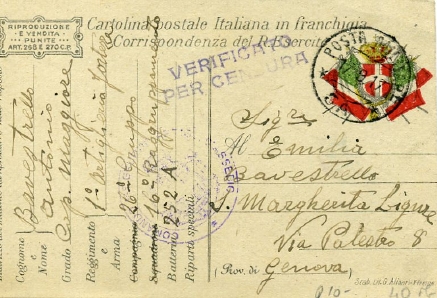 RIPRODUZIONE
E VENDITA
PUNITE
ART. 268 E 270 C.P.
Cartolina postale Italiana in franchigia
Corrispondenza del R. Esercito
VERIFICATO
PER CENSURA
POSTA
Cognome e Nome Bavestrello Antonio
Grado Cap. Maggiore
Reggimento e Arma 1° Artiglieria
Compagnia 26° Gruppo
Squadrone 6° Raggruppamento
Batteria 252 A
Riparti speciali
Al Sigra
Emilia
Bavestrello
S. Margherita Ligure
Via Palestro 8
(Prov. di Genova)